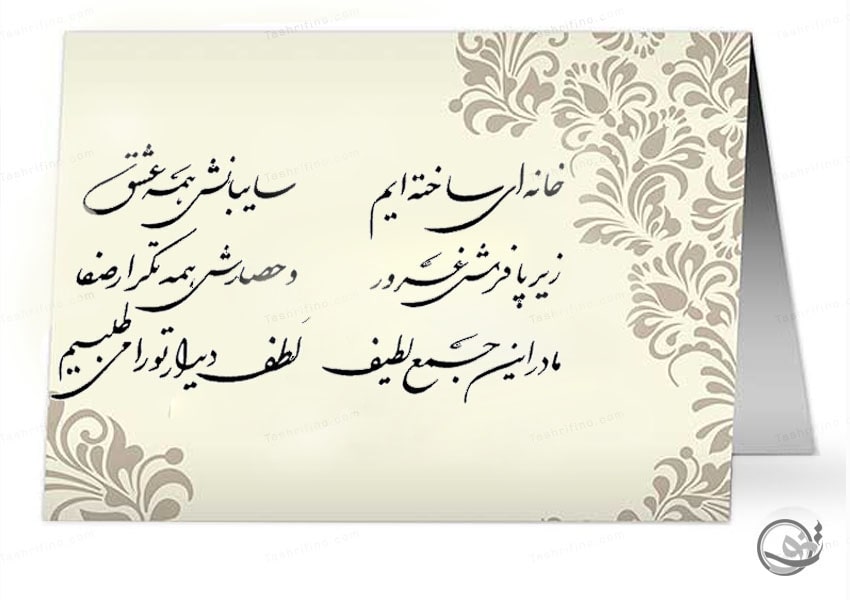 خانه ای ساخته ایم سایبانش همه عشق
زیر پا فرش غرور و حصارش همه تکرار صفا
ما در این جمع لطیف لطف دیدار تو را می طلبیم
Tashrifino.com